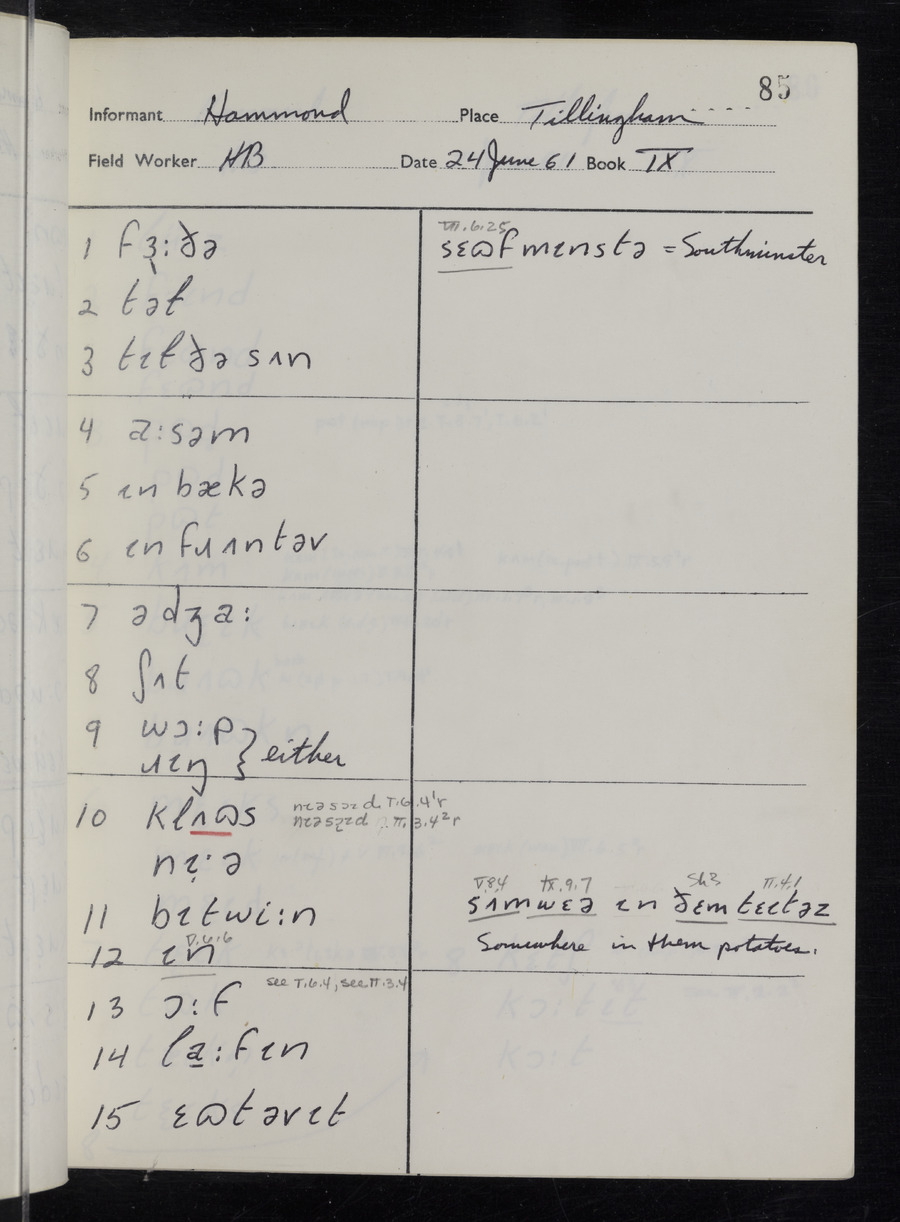 85
Informant Hammond Place Tillingham
Field Worker HB Date 24 June 61 Book IX
1 fɜ̣:ðə
2 tət
3 tɩt ðə sʌn
4 a:səm
5 ɩn bækə
6 ɩn fɹʌntəv
7 ədʒa:
8 ʃʌt
9 wɔ:p
ɹɩŋ } either
10 klʌɷs nɩəsɔɪd I.6.4'r
nɩəsʒɪd II.3.4²r
nɩ̣:ə
11 bɩtwi:n
V.6.6
12 ɩn
see I.6.4, see II.3.4
13 ɔ:f
14 la̠:fɩn
15 ɛɷtəvɩt
VII.6.25
sɛɷfmɩnstə = Southminster
V.8.4 IX.9.7 Sh3 II.4.1
sʌmwɛə ɩn ðɛm tɛɩtəz
Somewhere in them potatoes.